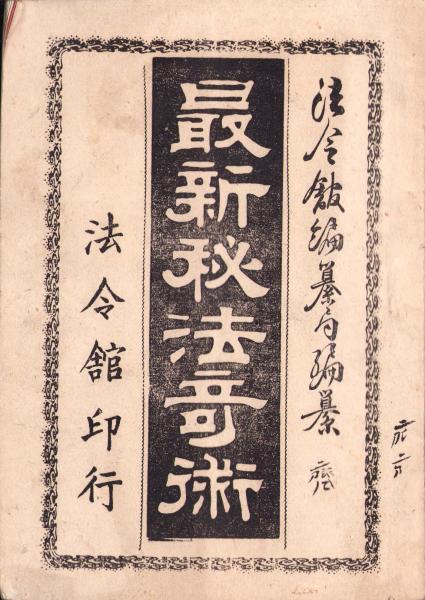 法令舘編纂局編纂
最新秘法奇術
法令舘印行